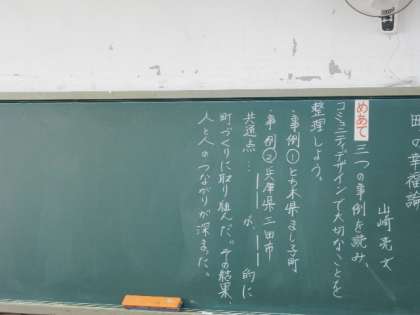 の幸福論
山崎亮 文
めあて 三つの事例を読み、
コミュニティデザインで大切なことを
整理しよう。
・事例①とち木県ましこ町
・事例②兵庫県三田市
共通点…――が、――的に
町づくりに取り組んだ。その結果、
人と人のつながりが深まった。